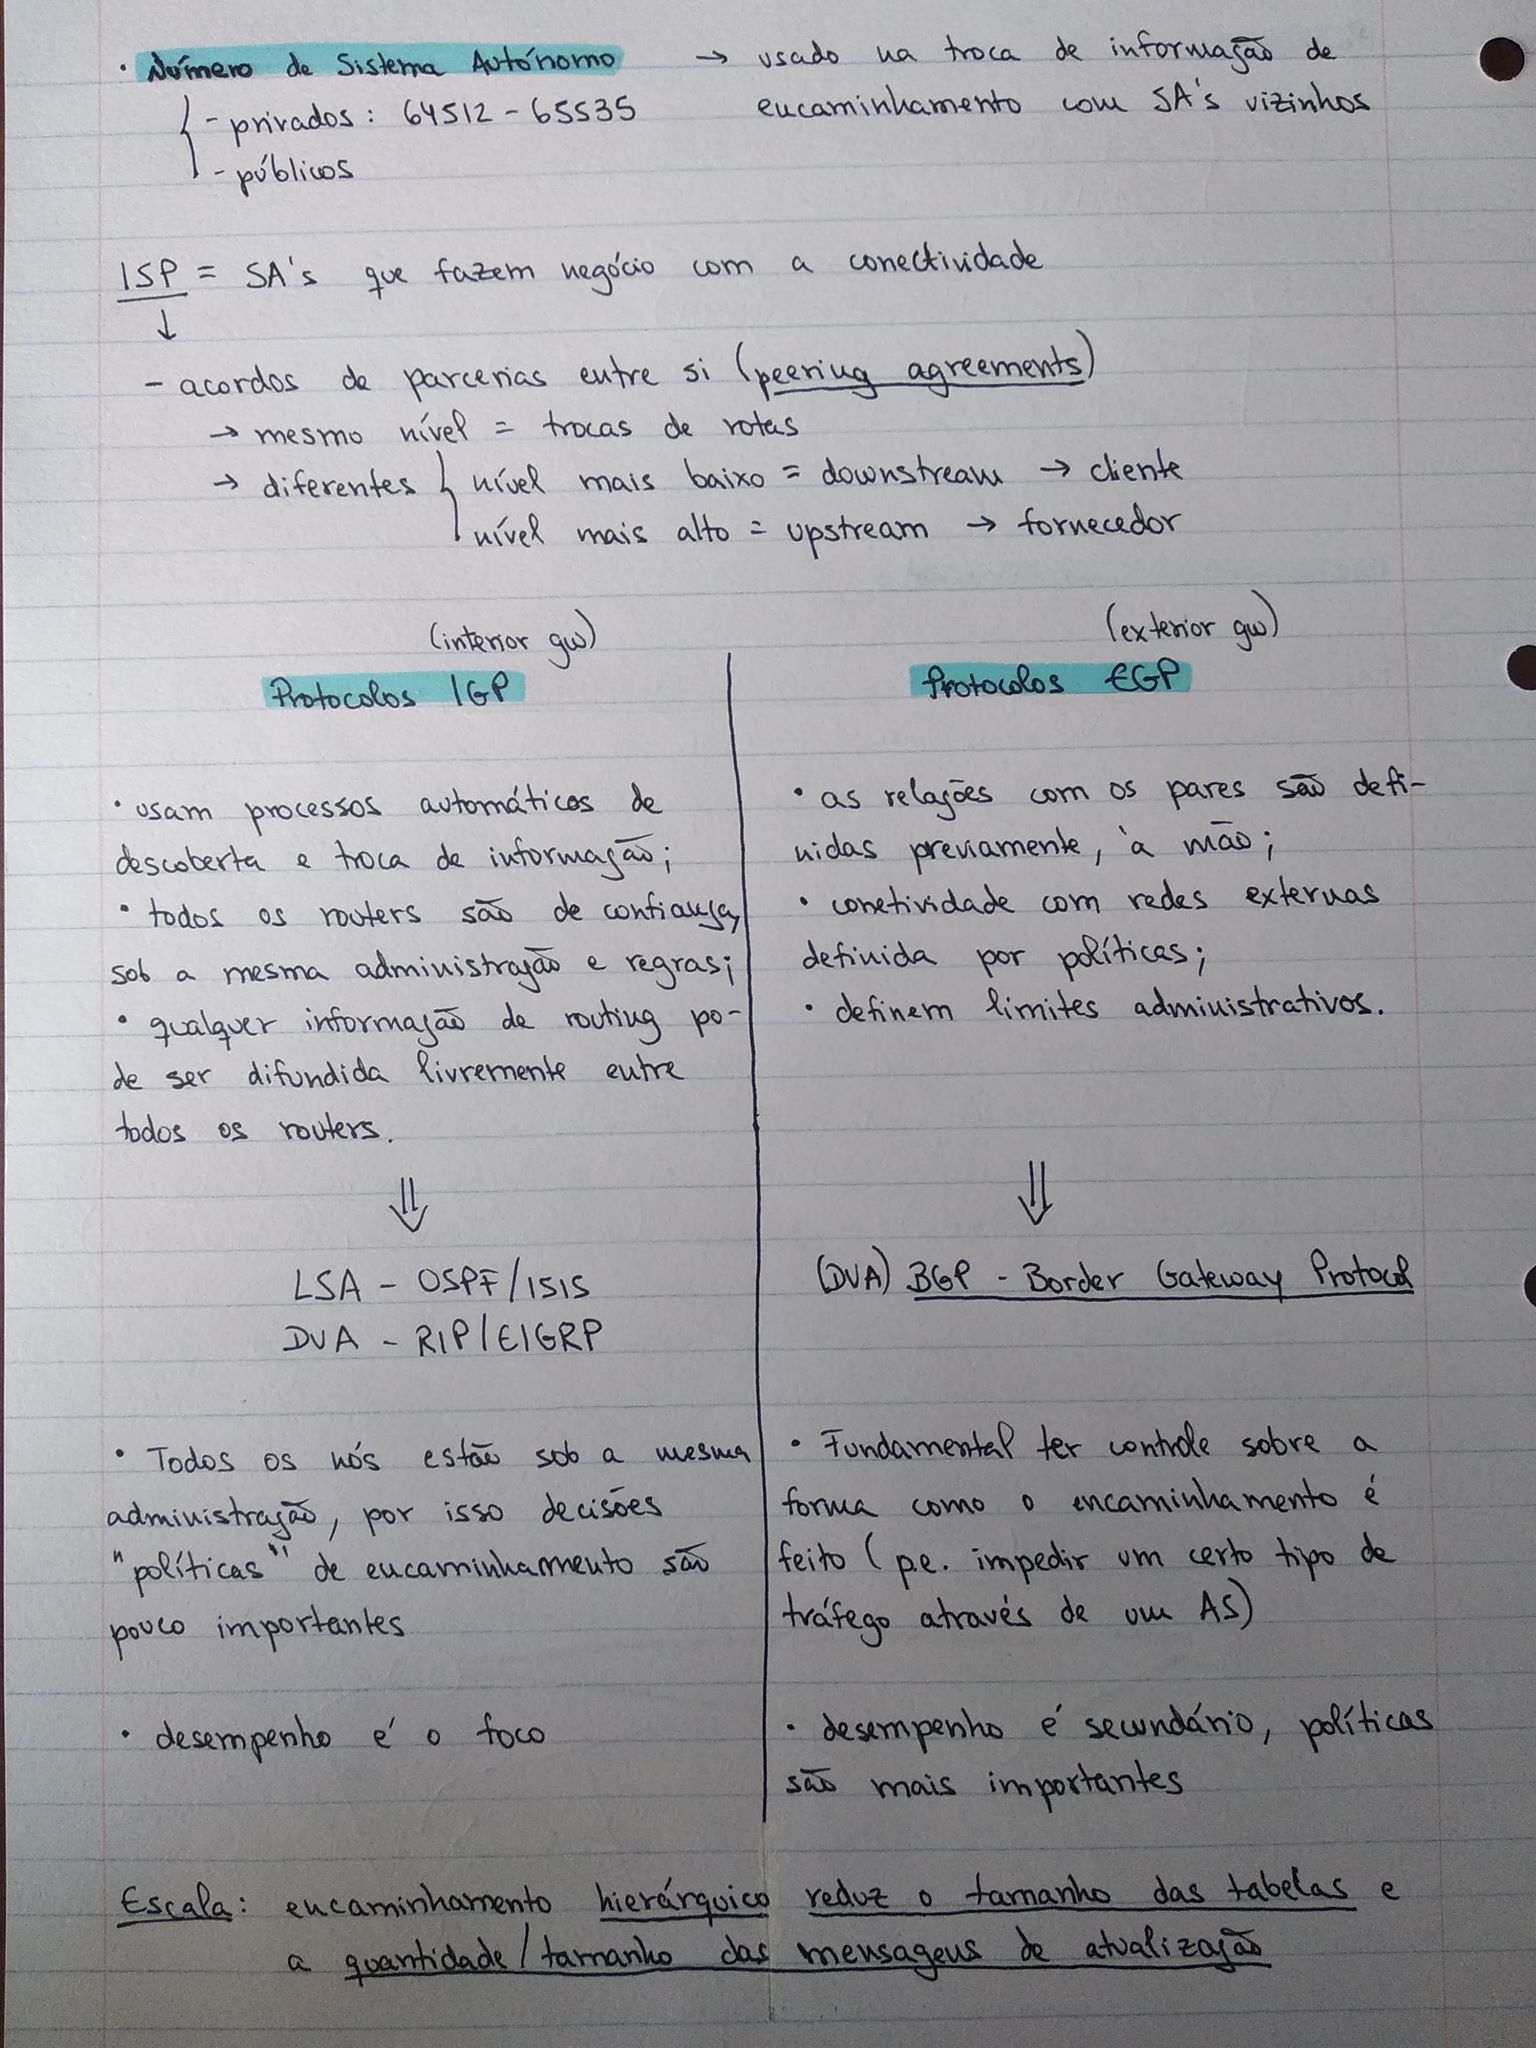 · Número de Sistema Autónomo → usado na troca de informação de
encaminhamento com SA's vizinhos
- privados: 64512 - 65535
- públicos
ISP = SA's que fazem negócio com a conectividade
↓
- acordos de parcerias entre si (peering agreements)
→ mesmo nível = trocas de rotas
→ diferentes { nível mais baixo = downstream → cliente
nível mais alto = upstream → fornecedor
(interior gw)
Protocolos IGP
· usam processos automáticos de
descoberta e troca de informação;
· todos os routers são de confiança,
sob a mesma administração e regras;
· qualquer informação de routing po-
de ser difundida livremente entre
todos os routers.
⇓
LSA - OSPF/ISIS
DVA - RIP/EIGRP
· Todos os nós estão sob a mesma
administração, por isso decisões
"políticas" de encaminhamento são
pouco importantes
· desempenho é o foco
(exterior gw)
Protocolos EGP
· as relações com os pares são defi-
nidas previamente, à mão;
· conetividade com redes externas
definida por políticas;
· definem limites administrativos.
⇓
(DVA) BGP - Border Gateway Protocol
· Fundamental ter controle sobre a
forma como o encaminhamento é
feito (p.e. impedir um certo tipo de
tráfego através de um AS)
· desempenho é secundário, políticas
são mais importantes
Escala: encaminhamento hierárquico reduz o tamanho das tabelas e
a quantidade/tamanho das mensagens de atualização